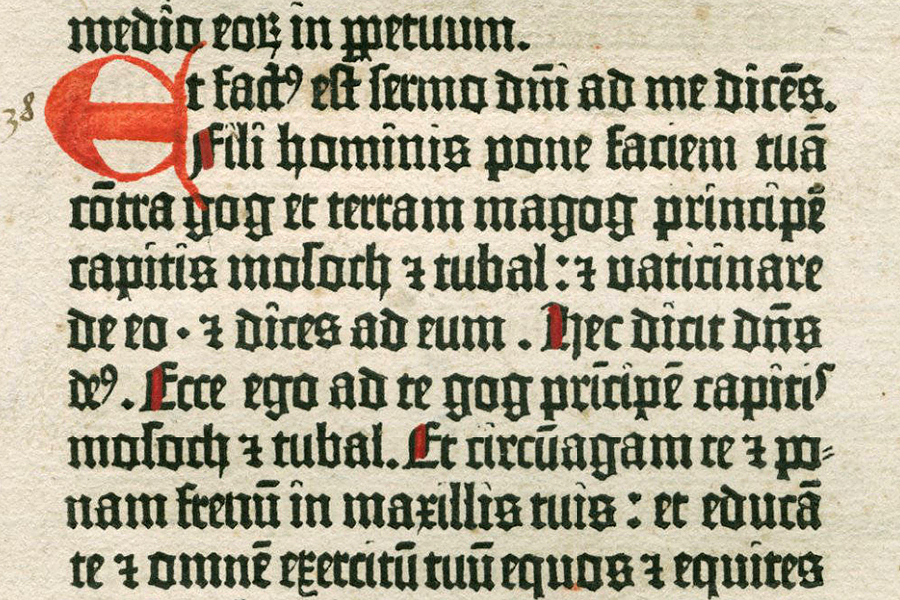 medio eoꝝ in ꝑpetuum.
Et factꝰ est sermo dn̄i ad me dicēs.
38
Fili hominis pone faciem tuā
cōtra gog et terram magog principē
capitis mosoch ⁊ tubal : ⁊ uaticinare
de eo · ⁊ dices ad eum . Hec dicit dn̄s
deꝰ . Ecce ego ad te gog prīcipē capitis
mosoch ⁊ tubal. Et circūagam te ⁊ po-
nam frenū in maxillis tuis : et educā
te ⁊ omnē exercitū tuū equos ⁊ equites